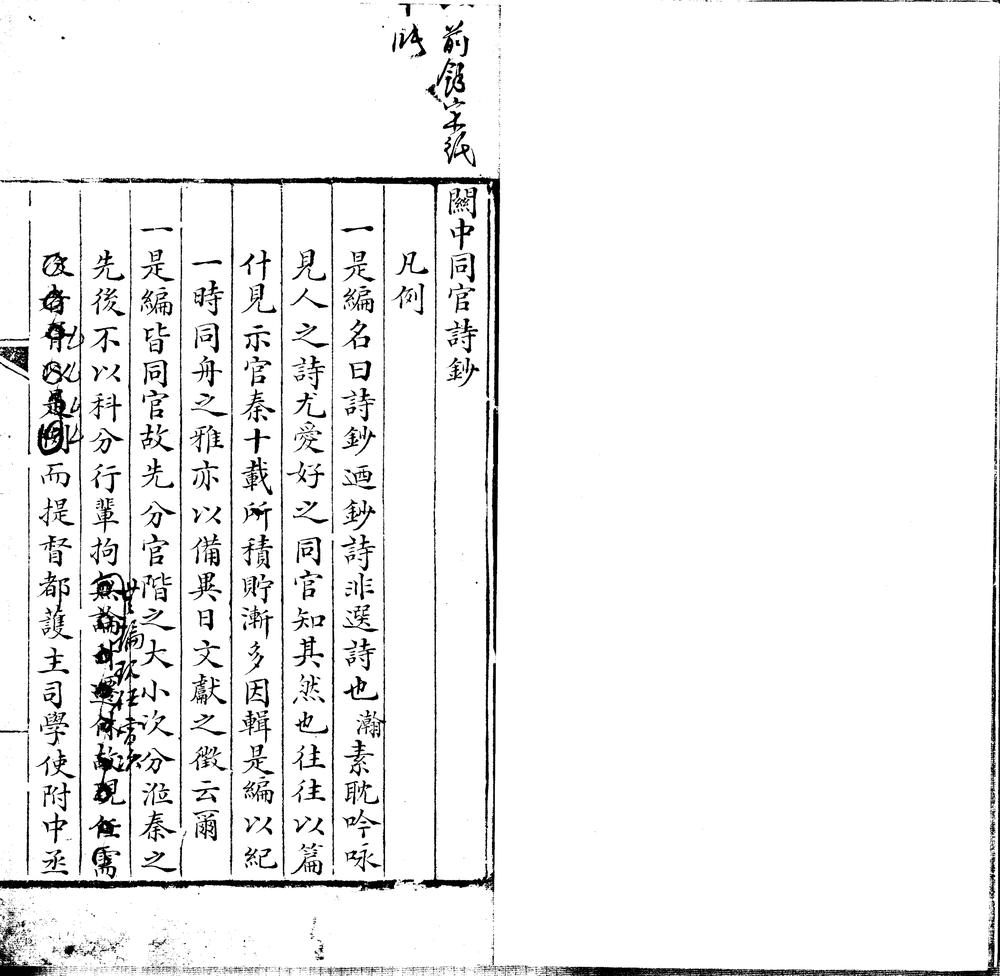 前
關中同官詩鈔
凡例
一是編名曰詩鈔迺鈔詩非選詩也瀚素耽吟咏
見人之詩尤愛好之同官知其然也往往以篇
什見示官秦十載所積貯漸多因輯是編以紀
一時同舟之雅亦以備異日文獻之徵云爾
一是編皆同官故先分官階之大小次分涖秦之
先後不以科分行輩拘無論升遷休故現任需
次者有以是例而提督都護主司學使附中丞